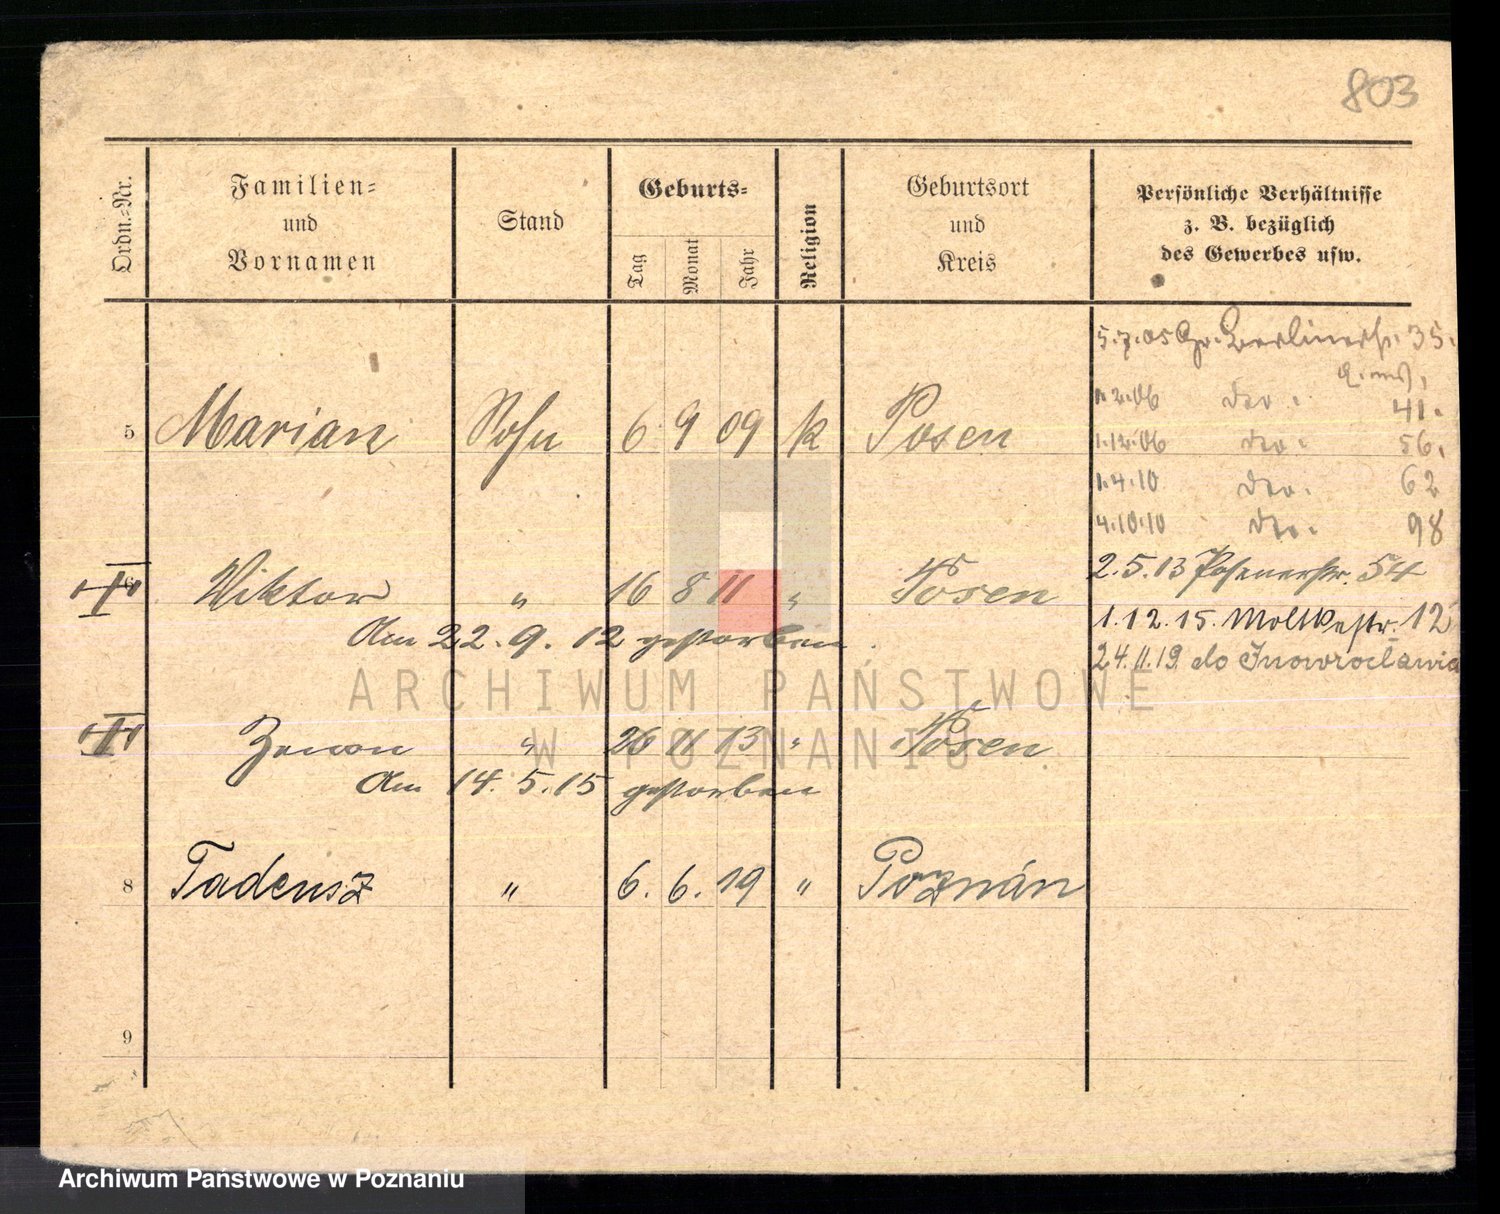 803
Ordn.-Nr.
Familien-
und
Vornamen
Stand
Geburts-
Tag
Monat
Jahr
Religion
Geburtsort
und
Kreis
Persönliche Verhältnisse
z. B. bezüglich
des Gewerbes usw.
5.7.05 Gr. Berlinerstr. 35.
1.2.06 dto. 41.
5 Marian Sohn 6 9 09 k Posen
1.12.06 dto. 56.
1.4.10 dto. 62
4.10.10 dto. 98
2.5.13 Posenerstr. 54
Wiktor " 16 8 11 " Posen
1.12.15. Moltkestr. 12
Am 22.9.12 gestorben.
24.11.19 do Inowrocławia
ARCHIWUM PAŃSTWOWE
W POZNANIU
Zenon " 26 11 13 " Posen
Am 14.5.15 gestorben
8 Tadeusz " 6. 6. 19 " Poznań
9
Archiwum Państwowe w Poznaniu